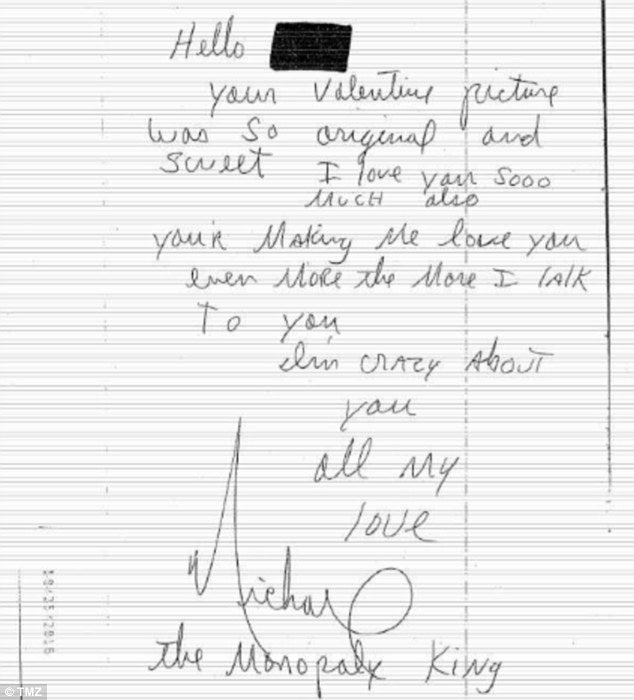 Hello
your Valentine picture
was so original and
sweet I love you sooo
MUCH also
your Making Me love you
even More the More I talk
To you
I'm CRAZY About
you
all my
love
Michael
the Monopoly King
10/25/2016
© TMZ